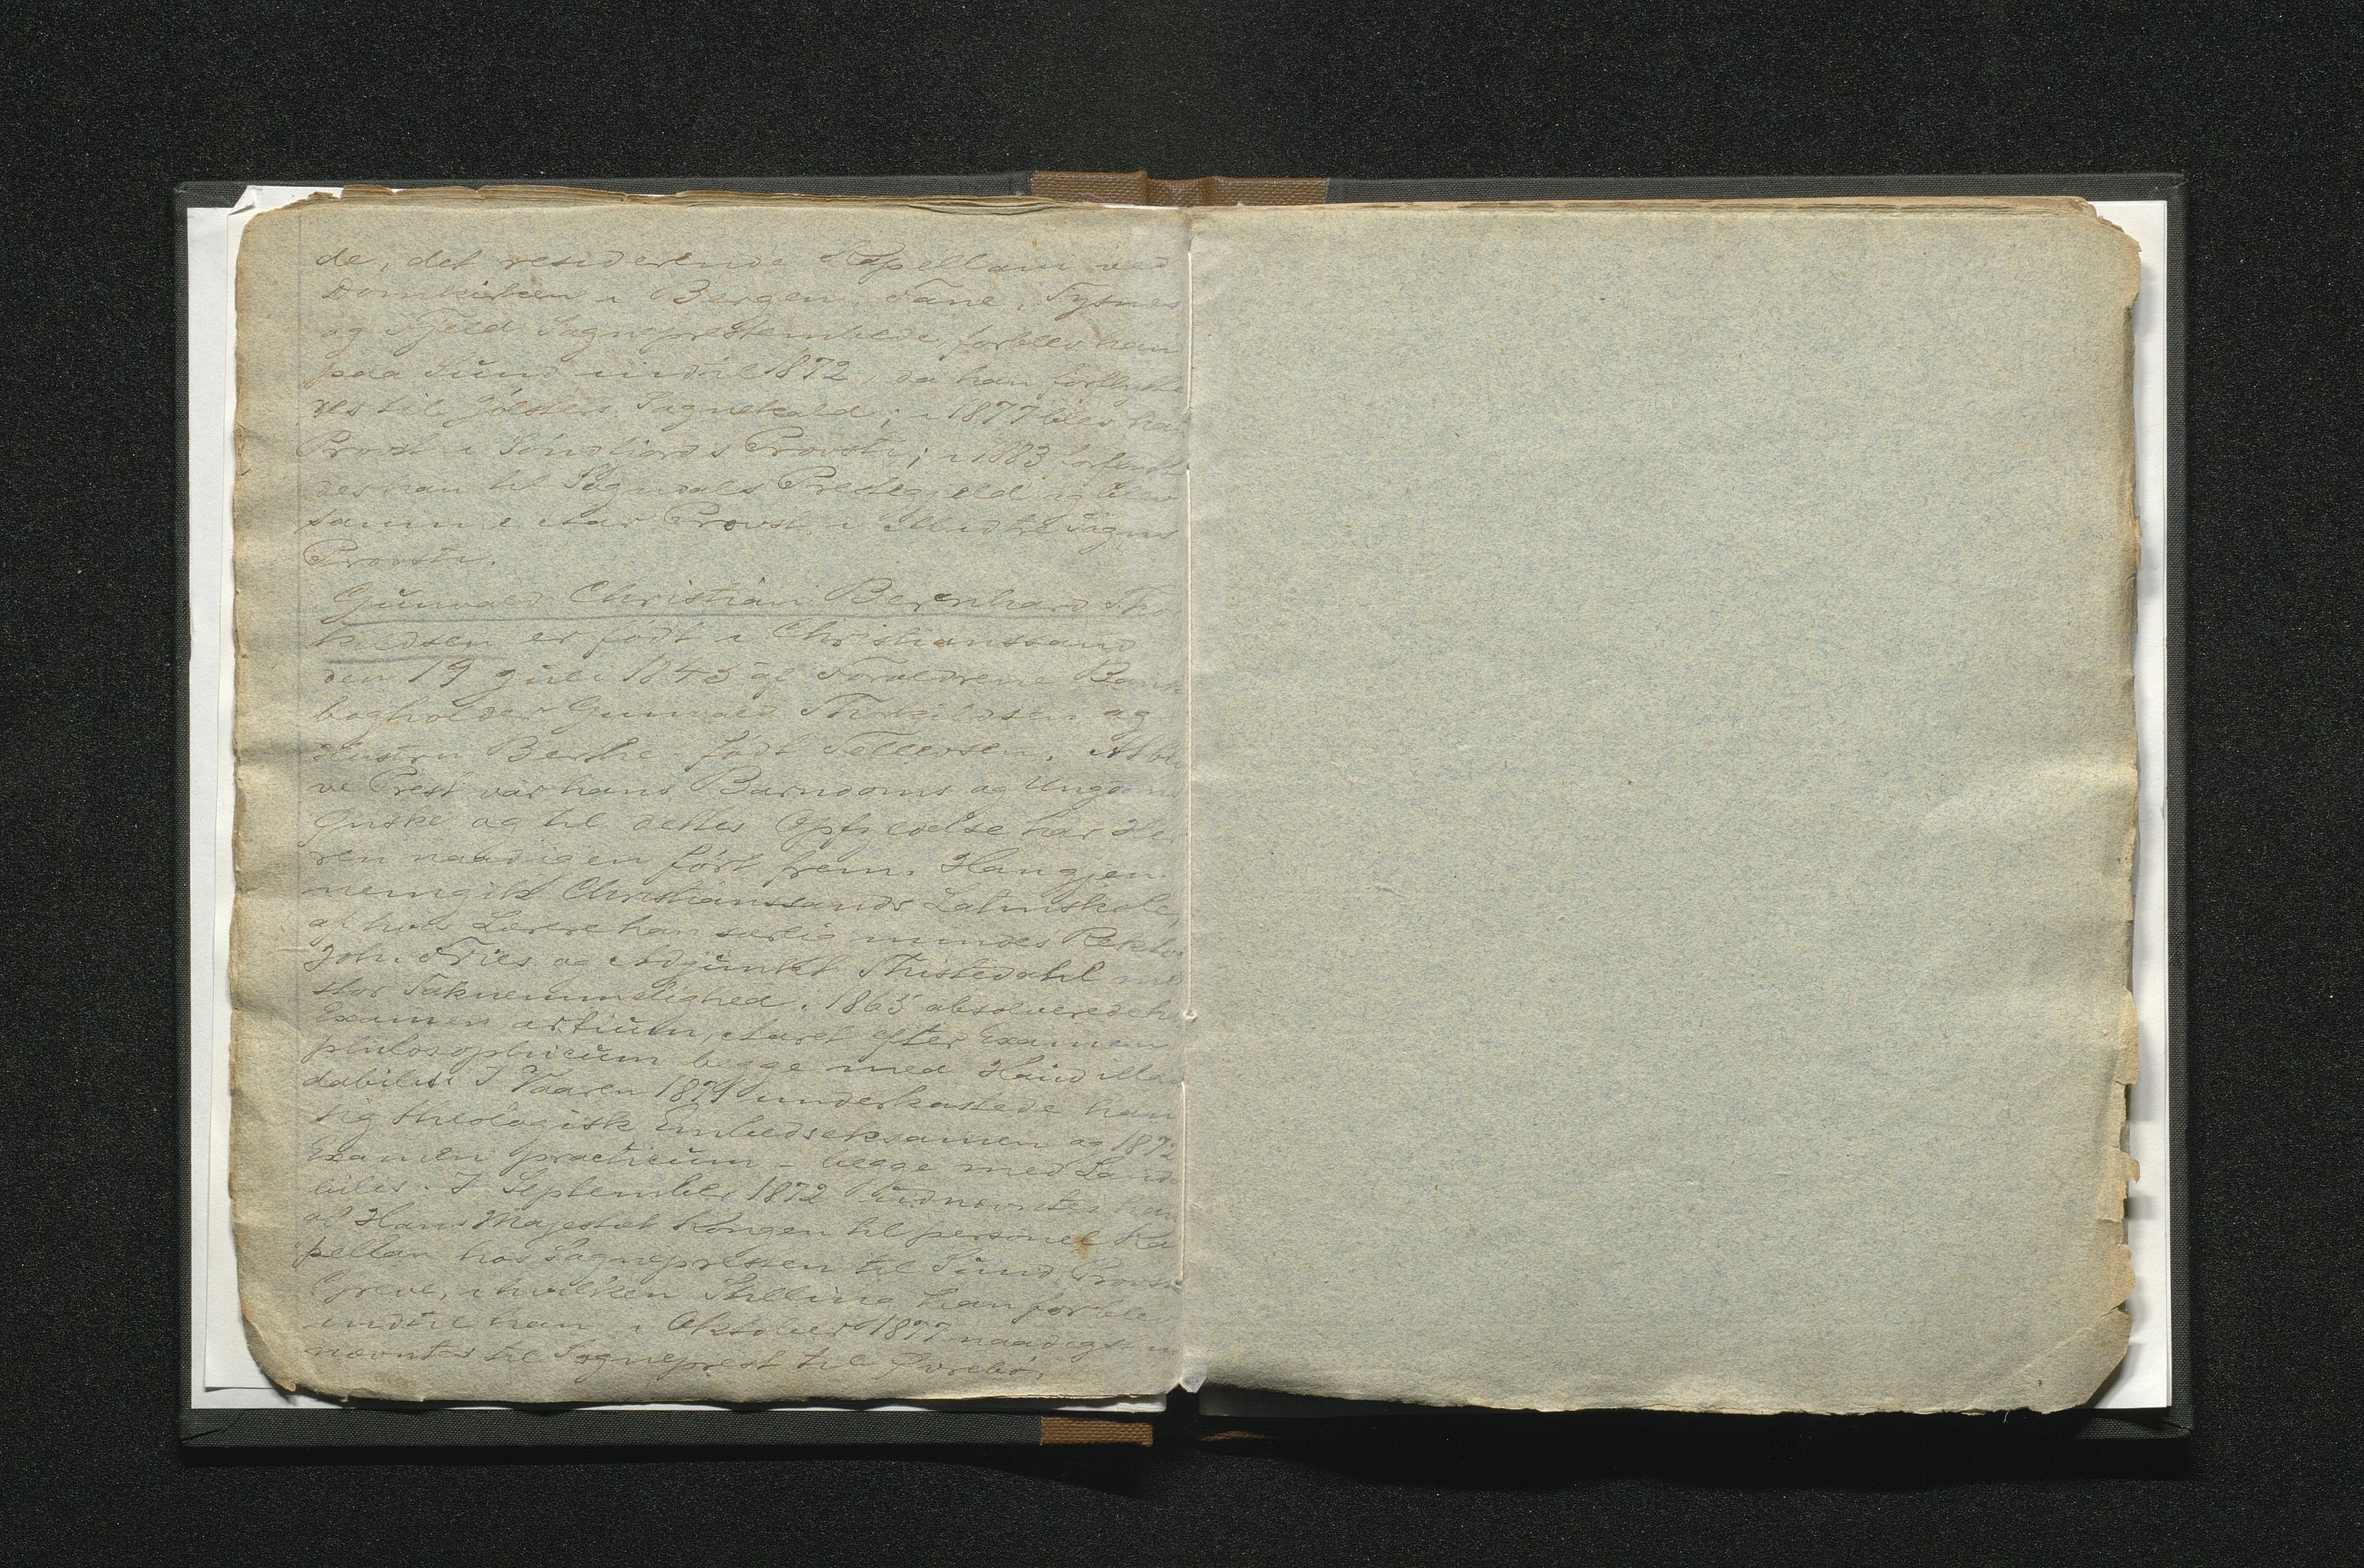 de, det residerende Kapellani ved
Domkirken i Bergen, Fane, Tysnes
og Fjeld Sogneprestembede, forblev han
paa Sund indtil 1872, da han forflytte
des til Jölsters Sognekald; i 1877 blev han
Provst i Söndfjords Provsti; i 1883 forflytte
des han til Sogndals Prestegjeld og blev
samme Aar Provst i Midtre Sogns
Provsti.
Gunvald Christian Bernhard Thor
kildsen er födt i Christianssand
den 19 Juli 1845 af Forældrene Bank
bogholder Gunvald Thorkildsen og
Hustru Berthe födt Tellevsen. At bli
ve Prest var hans Barndoms og Ungdoms
Önske og til dettes Opfyldelse har Her
ren naadigen fört frem. Han gjen-
nemgik Christianssands Latinskole,
af hvis Lærere han særlig mindes Rektor
Joh. Fries og Adjunkt Thistedahl med
stor Taknemmelighed. 1865 absolverede han
Examen artium, Aaret efter Examen
philosophicum begge med Haud illau
dabilis. I Vaaren 1871 underkastede han
sig theologisk Embedseksamen og 1872
Examen practicum - begge med Lauda
bilis. I September 1872 udnævntes han
af Hans Majestæt Kongen til personel Ka
pellan hos Sognepresten til Sund, Provst
Greve, i hvilken Stilling han forblev
indtil han i Oktober 1877 naadigst
nævntes til Sogneprest til Övrebö,